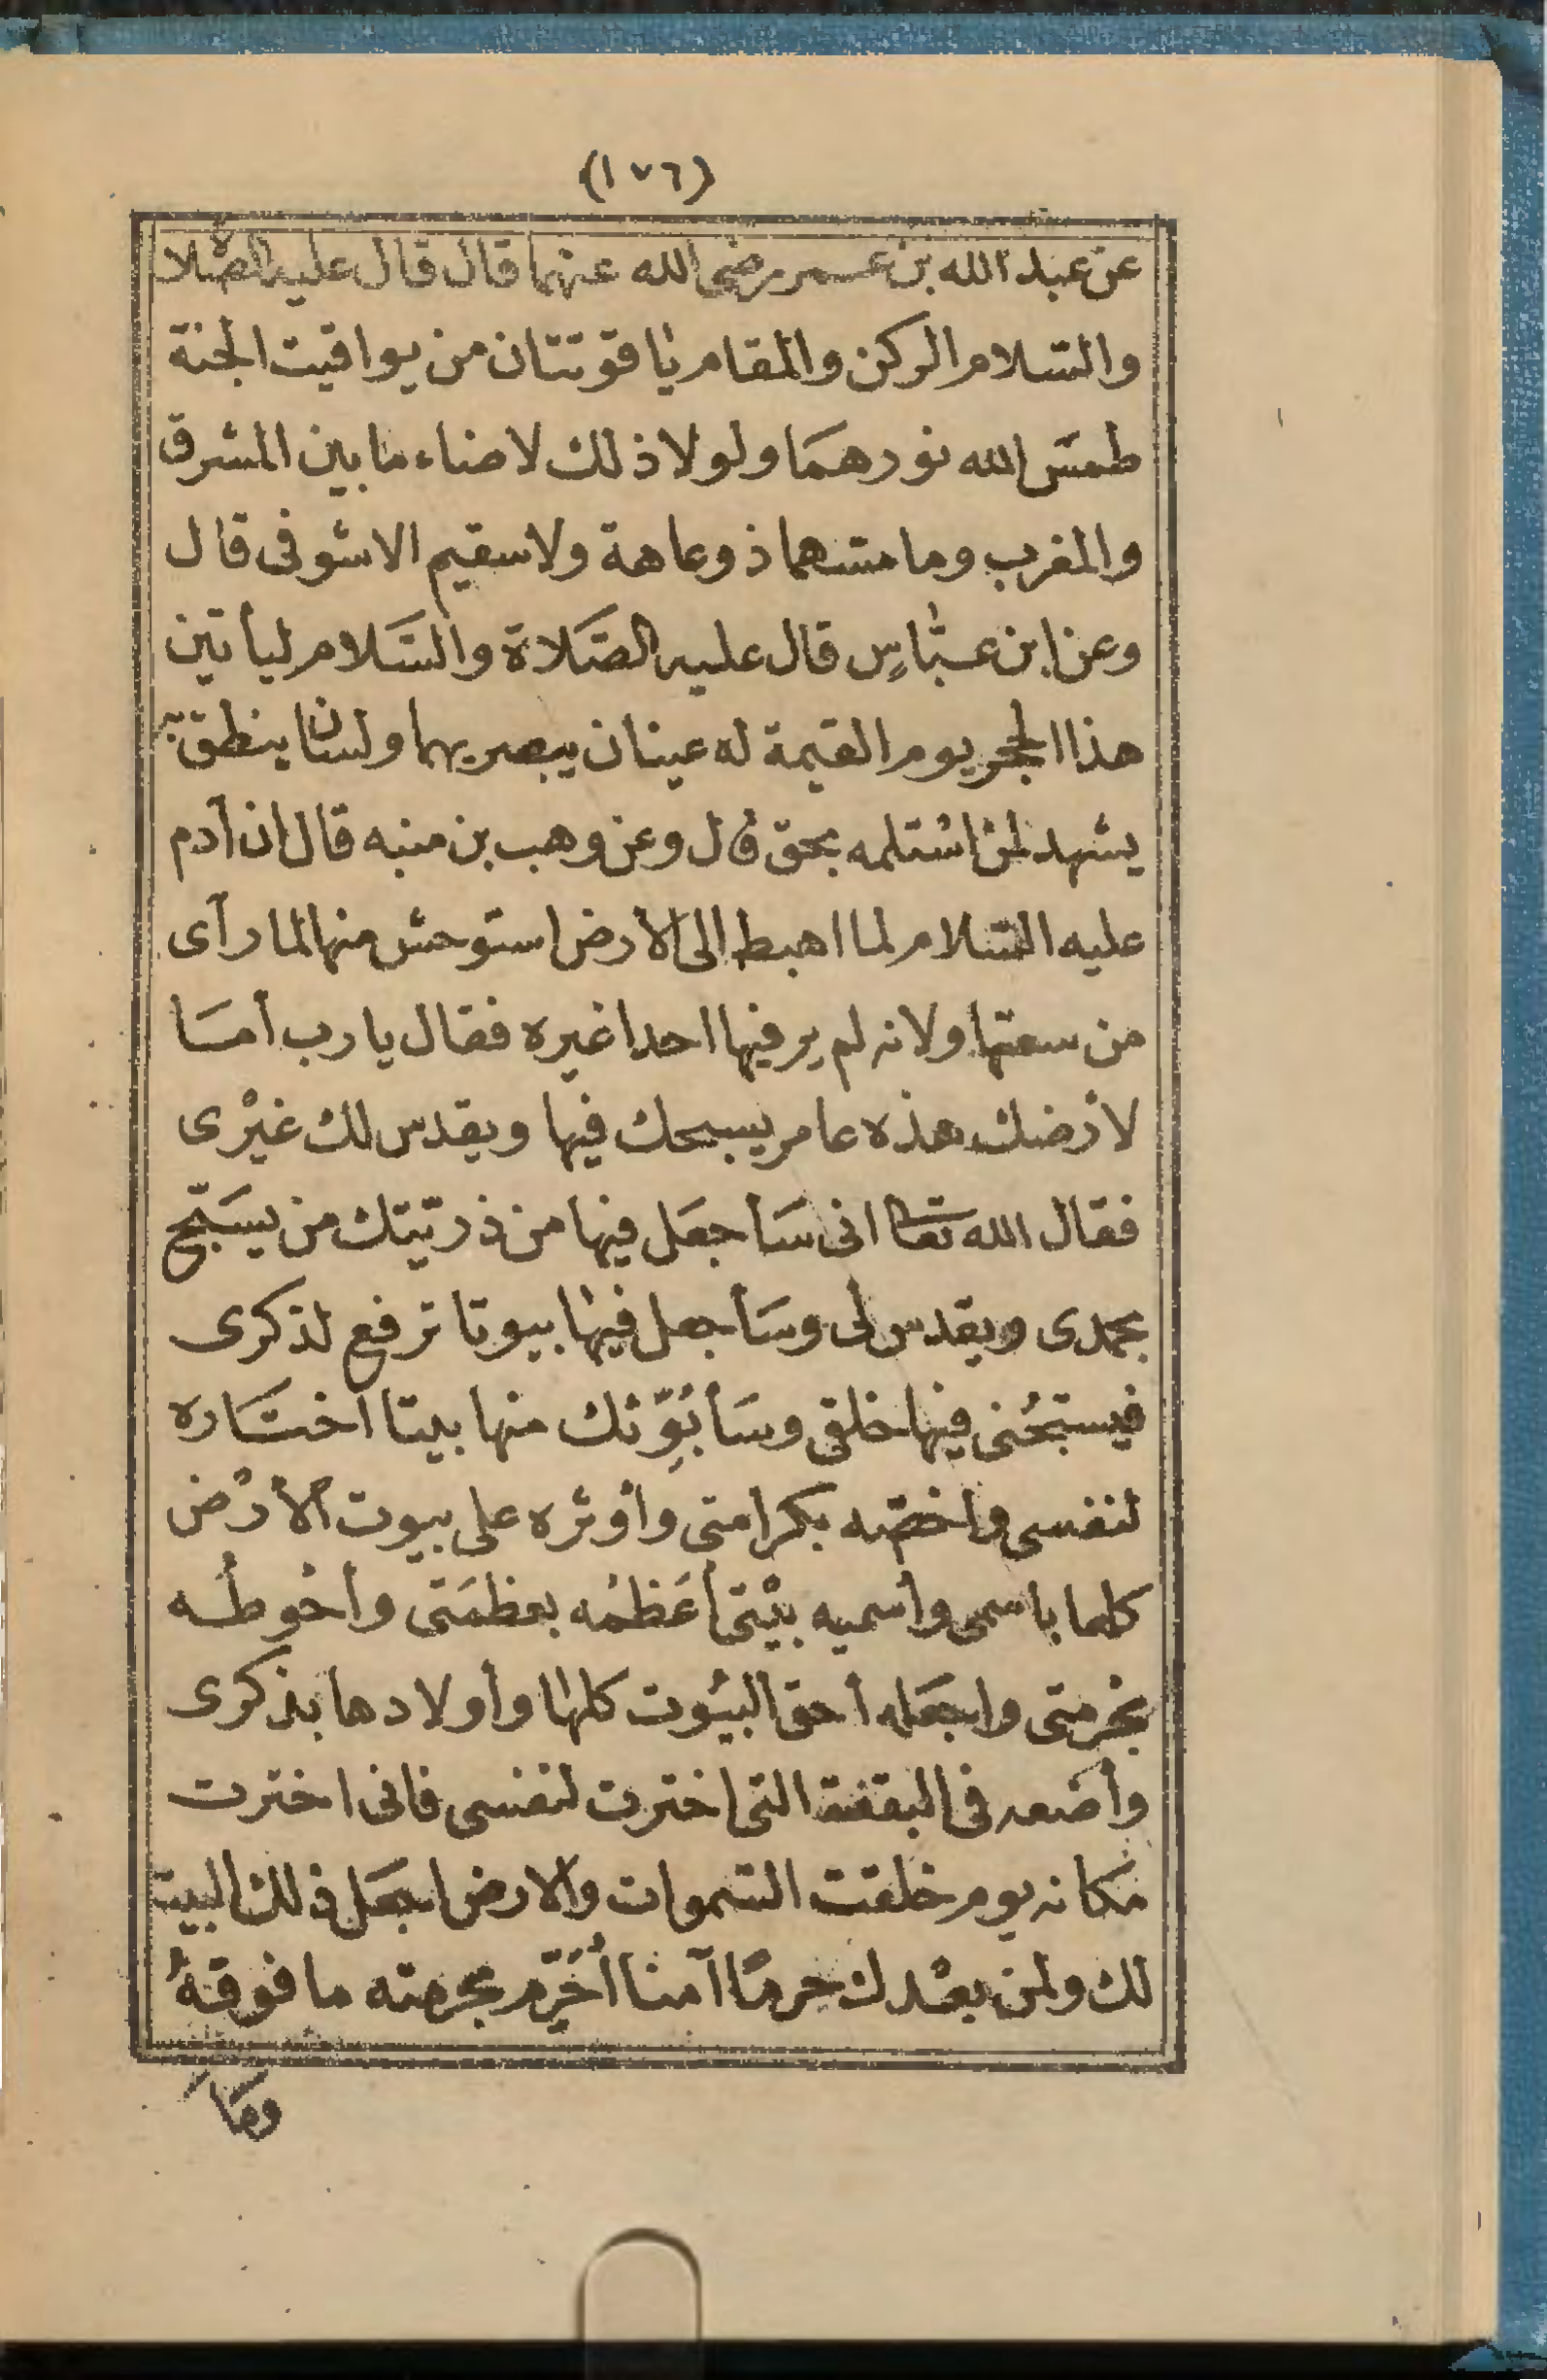 (١٧٦)
عن عبد الله بن عمر رضى الله عنهما قال قال عليه الصّلاة
والسّلام الركن والمقام ياقوتتان من يواقيت الجنة
طمسَ الله نورهمَا ولولا ذلك لاضاء ما بين المشرق
والمغرب وما مسّهما ذوعاهة ولا سقيم الا شوفى قال
وعن ابن عبّاسٍ قال عليه الصَّلاة والسَّلام ليأتين
هذا الحجر يوم القيمة له عينان يبصر بهما ولسان ينطق به
يشهد لمن استلمه بحق قال وعن وهب بن منبه قال ان آدم
عليه السّلام لما اهبط الى الأرض استوحش منها لما رآى
من سعتها ولانه لم ير فيها احدا غيره فقال يا رب أمَا
لأرضك هذه عامر يسبحك فيها ويقدس لك غيْرى
فقال الله تعا انى سَأجعَل فيها من ذريّتك من يسَبّح
بحمدى ويقدس لى وسَأجعل فيها بيوتا ترفع لذكرى
فيسبّحُنى فيها خلقى وسَأبُوِّئك منها بيتا اختَاره
لنفسى واخصّه بكرامتى وأوثره على بيوت الأرْض
كلها باسمى وأسميه بيْتى أعَظمُه بعظمَتى وأحُوطُه
بحُرمتى واجعَله أحق البيُوت كلها وأولادها بذكرى
وأضعه فى البقعة التى اخترت لنفسى فانى اخترت
مكانه يوم خلقت السّموات والارض اجعَل ذلك البيت
لك ولمن بعْدك حرمًا آمنا أُحَرِّم بحرمته ما فوقهُ
ومَا